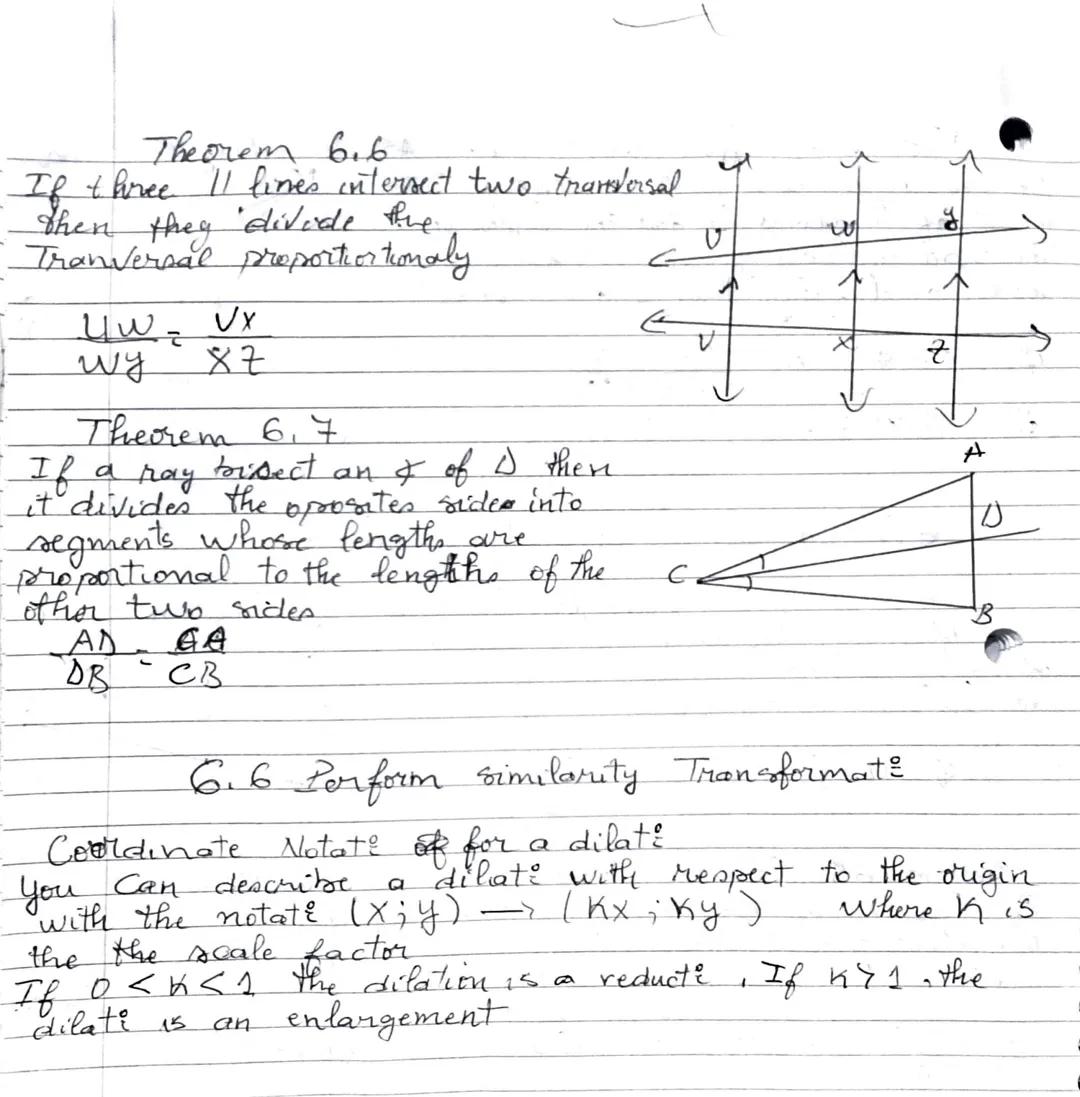 Theorem 6.6
If three // lines intersect two transversal
then they divide the
Tranversal proportiortionaly
UW = VX
WY XZ
U W Y
V X Z
Theorem 6.7
If a ray bisect an ∡ of Δ then
it divides the oposites sides into
segments whose lengths are
proportional to the lengths of the
other two sides
AD = CA
DB CB
A
D
C
B
6.6 Perform similarity Transformat°
Coordinate Notat° for a dilat°
You Can describe a dilat° with respect to the origin
with the notat° (x; y) → (Kx; Ky) where K is
the the scale factor
If 0 < K < 1 the dilation is a reduct°, If K > 1, the
dilat° is an enlargement